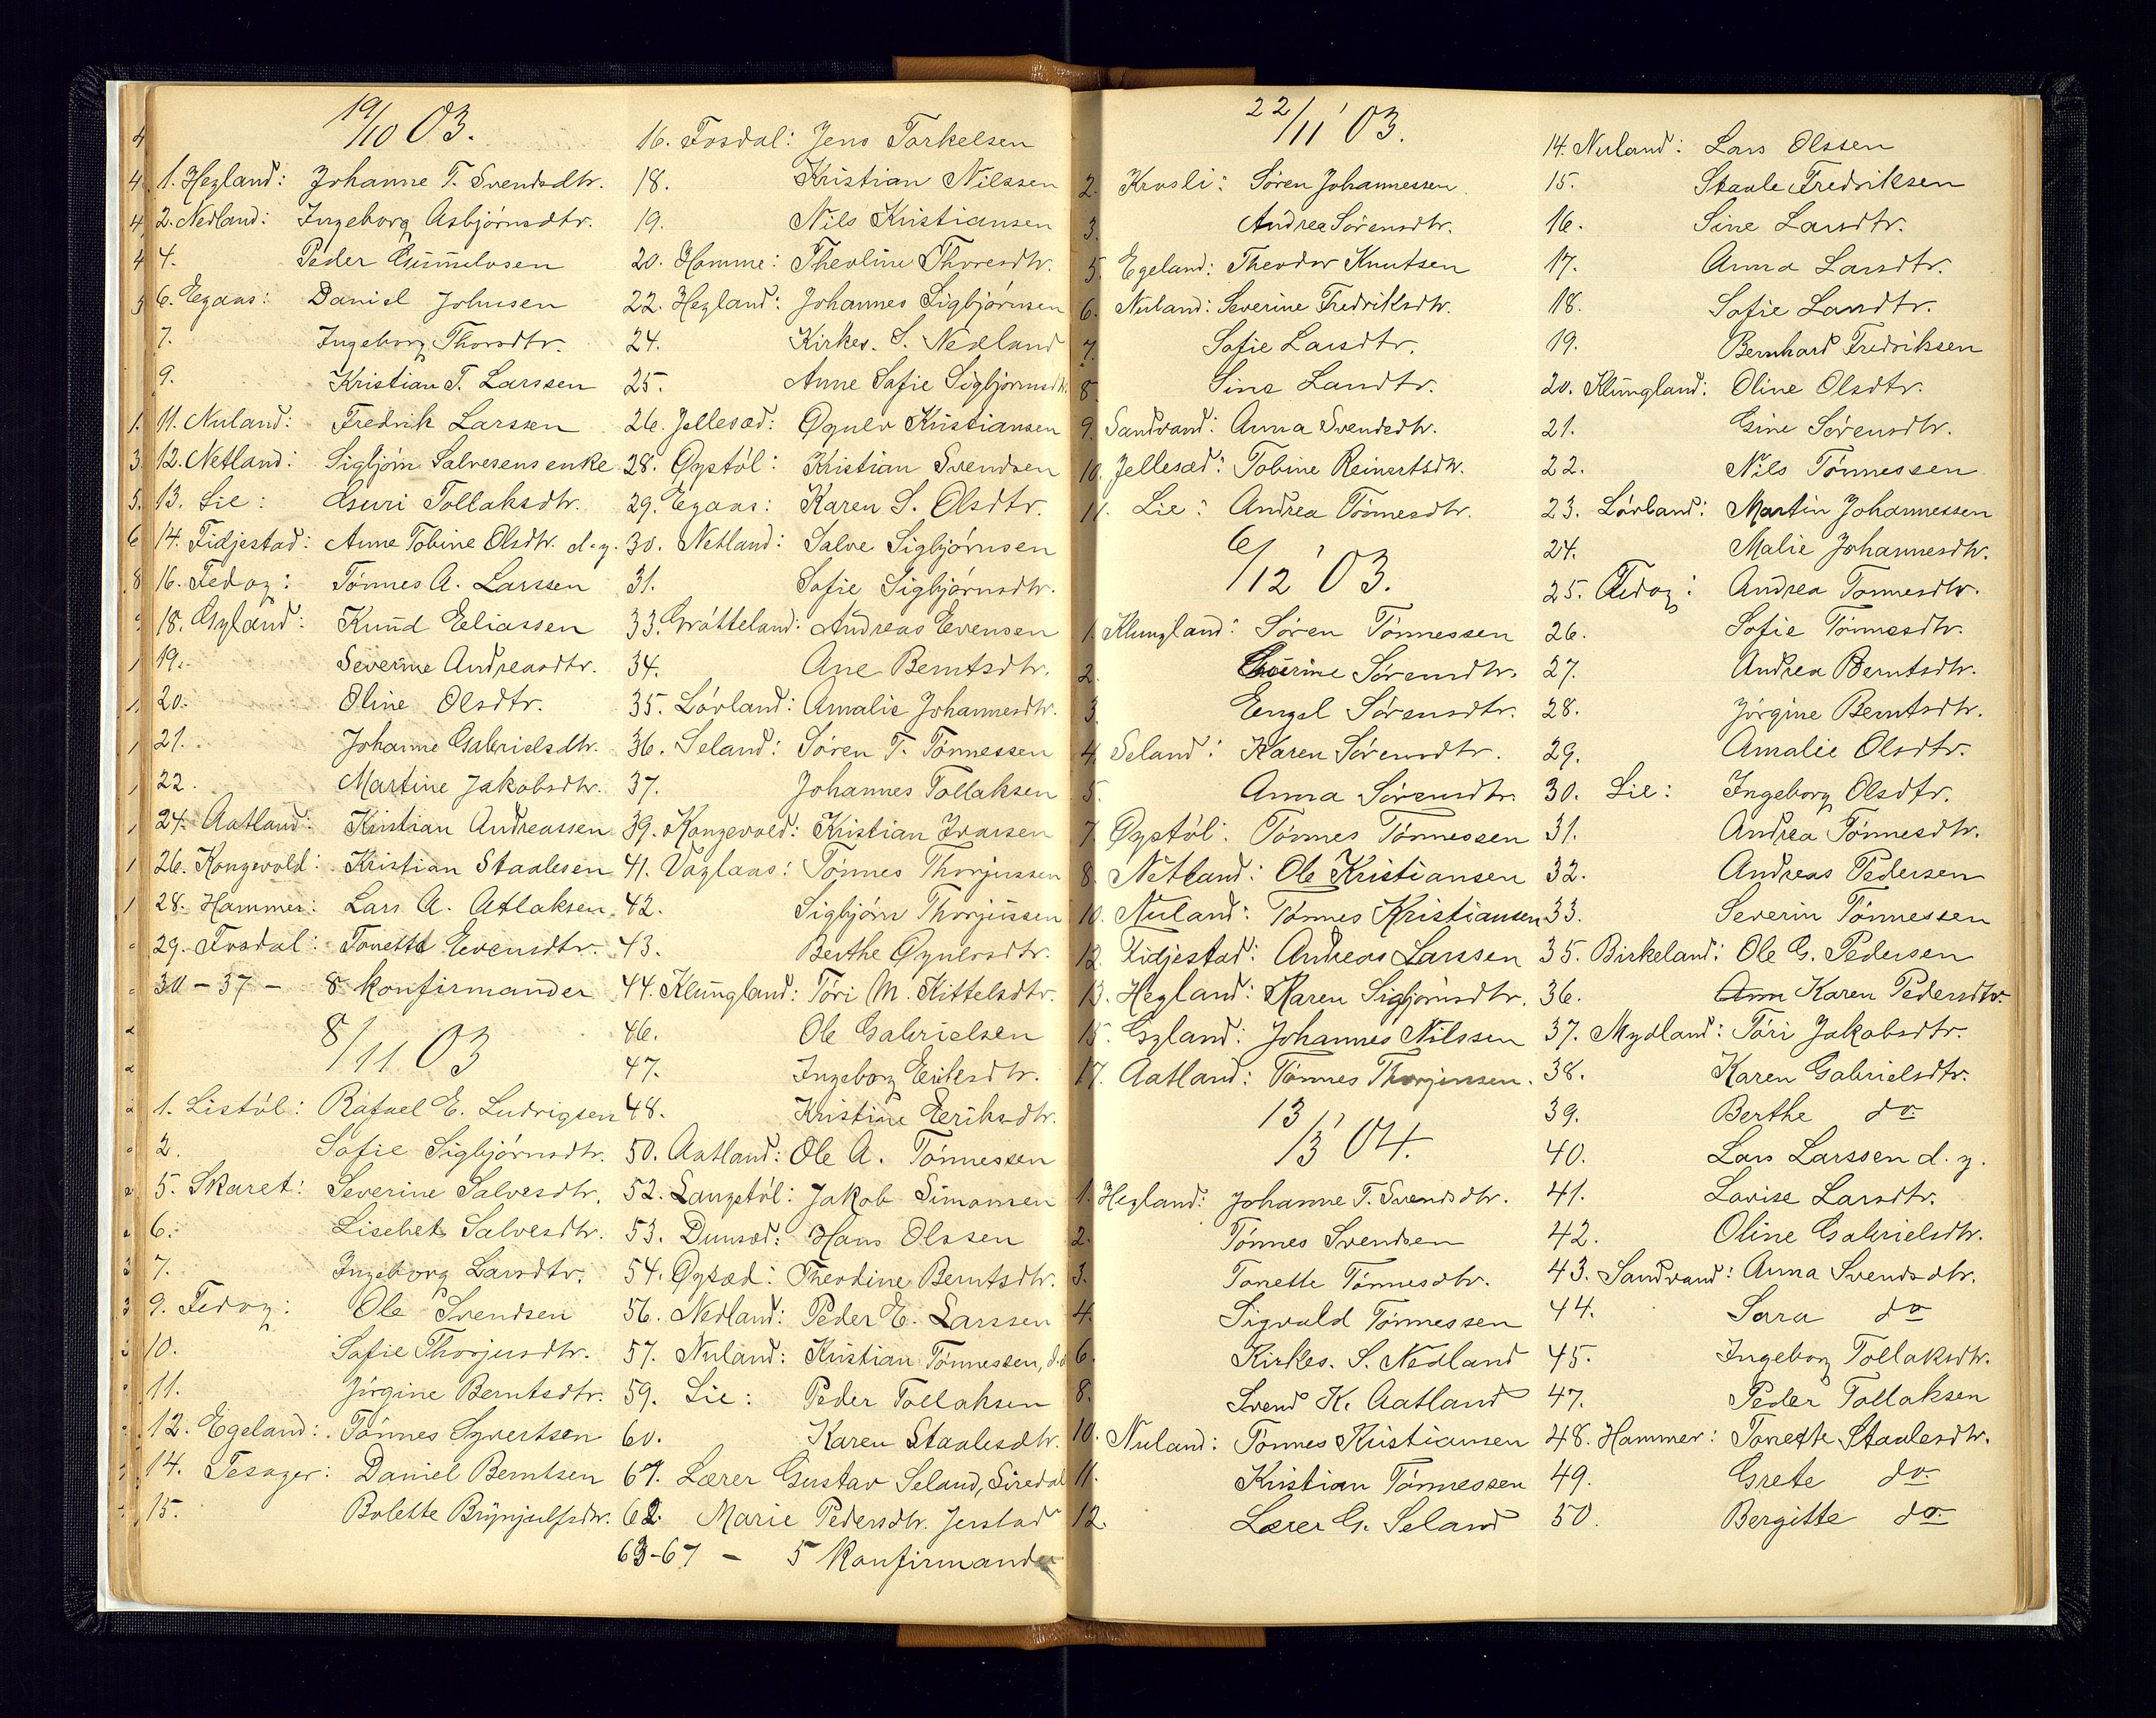 19/10 03.
1. Hegland: Johanne T. Svendsdtr.
2. Nedland: Ingeborg Asbjörnsdtr.
4. Peder Gŭmŭelosen
6. Egaas: Daniel Johnsen
7. Ingeborg Thorsdtr.
9. Kristian T. Larssen
11. Nuland: Fredrik Larssen
12. Netland: Sigbjörn Salvesens enke
13. Lie: Guri Tollaksdtr.
14. Fidjestad: Anne Tobine Olsdtr. d. y.
16. Fedog: Tönnes A. Larssen
18. Gyland: Knud Eliassen
19. Severine Andreasdtr.
20. Oline Olsdtr.
21. Johanne Gabrielsdtr.
22. Martine Jakobsdtr.
24. Aatland: Kristian Andreassen
26. Kongevold: Kristian Staalesen
28. Hammer: Lars A. Atlaksen
29. Fosdal: Tonette Evensdtr.
30-37 - 8 konfirmander
8/11 03
1. Listöl: Rafael E. Ludvigsen
2. Sofie Sigbjörnsdtr.
5. Skaret: Severine Salvesdtr.
6. Lisebet Salvesdtr.
7. Ingeborg Larsdtr.
9. Fedog: Ole Svendsen
10. Sofie Thorjusdtr.
11. Jörgine Berntsdtr.
12. Egeland: Tönnes Syvertsen
14. Tesager: Daniel Berntsen
15. Bolette Brynjulfsdtr.
16. Fosdal: Jens Torkelsen
18. Kristian Nilssen
19. Nils Kristiansen
20. Homme: Theoline Thoresdtr.
22. Hegland: Johannes Sigbjörnsen
24. Kirkes. S. Nedland
25. Anne Sofie Sigbjörnsdtr.
26. Jellesæd: Öynlv Kristiansen
28. Öygstöl: Kristian Svendsen
29. Egaas: Karen S. Olsdtr.
30. Netland: Salve Sigbjörnsen
31. Sofie Sigbjörnsdtr.
33. Gråtteland: Andreas Evensen
34. Ane Berntsdtr.
35. Lövland: Amalie Johannesdtr.
36. Seland: Sören T. Tönnessen
37. Johannes Tollaksen
39. Kongevold: Kristian Ivarsen
41. Vaglaas: Tönnes Thorjussen
42. Sigbjörn Thorjussen
43. Berthe Öynlvsdtr.
44. Klungland: Töri M. Kittelsdtr.
46. Ole Gabrielsen
47. Ingeborg Eeriksdtr.
48. Kristine Eeriksdtr.
50. Aatland: Ole A. Tönnessen
52. Langstöl: Jakob Simonsen
53. Dunsæd: Hans Olssen
54. Öysæd: Theodine Berntsdtr.
56. Nedland: Peder E. Larssen
57. Nuland: Kristian Tönnessen,
59. Lie: Peder Tollaksen
60. Karen Staalesdtr.
61. Lærer Gustav Seland, Siredal
62. Marie Pedersdtr. Jerstad
63-67 - 5 Konfirmander
22/11 '03.
2. Krosli: Sören Johannessen
3. Andrea Sörensdtr.
5. Egeland: Theodor Knutsen
6. Nuland: Severine Fredriksdtr.
7. Sofie Larsdtr.
8. Sine Larsdtr.
9. Sandvand: Anna Svendsdtr.
10. Jellesæd: Tobine Reinertsdtr.
11. Lie: Andrea Tönnesdtr.
6/12 '03.
1. Klungland: Sören Tönnessen
2. Sörensdtr.
3. Engel Sörensdtr.
4. Seland: Karen Sörensdtr.
5. Anna Sörensdtr.
7. Öygstöl: Tönnes Tönnessen
8. Netland: Ole Kristiansen
10. Nuland: Tönnes Kristiansen
12. Fidjestad: Andreas Larssen
13. Hegland: Karen Sigbjörnsdtr.
15. Gyland: Johannes Nilssen
17. Aatland: Tönnes Thorjussen.
13/3 '04.
1. Hegland: Johanne T. Svendsdtr.
2. Tönnes Svendsen
3. Tonette Tönnesdtr.
4. Sigvald Tönnessen
6. Kirkes. S. Nedland
8. Svend K. Aatland
10. Nuland: Tönnes Kristiansen
11. Kristian Tönnessen
12. Lærer G. Seland
14. Nuland: Lars Olssen
15. Staale Fredriksen
16. Sine Larsdtr.
17. Anna Larsdtr.
18. Sofie Larsdtr.
19. Bernhard Fredriksen
20. Klungland: Oline Olsdtr.
21. Gine Sörensdtr.
22. Nils Tönnessen
23. Lövland: Martin Johannessen
24. Malie Johannesdtr.
25. Fedog: Andrea Tönnesdtr.
26. Sofie Tönnesdtr.
27. Andrea Berntsdtr.
28. Jörgine Berntsdtr.
29. Amalie Olsdtr.
30. Lie: Ingeborg Olsdtr.
31. Andrea Tönnesdtr.
32. Andreas Pedersen
33. Severin Tönnessen
35. Birkeland: Ole G. Pedersen
36. Karen Pedersdtr.
37. Mydland: Töri Jakobsdtr.
38. Karen Gabrielsdtr.
39. Berthe do
40. Lars Larssen d. y.
41. Lovise Larsdtr.
42. Oline Gabrielsdtr.
43. Sandvand: Anna Svendsdtr.
44. Sara do
45. Ingeborg Tollaksdtr.
47. Peder Tollaksen
48. Hammer: Tonette Staalesdtr.
49. Grete do
50. Bergitte do